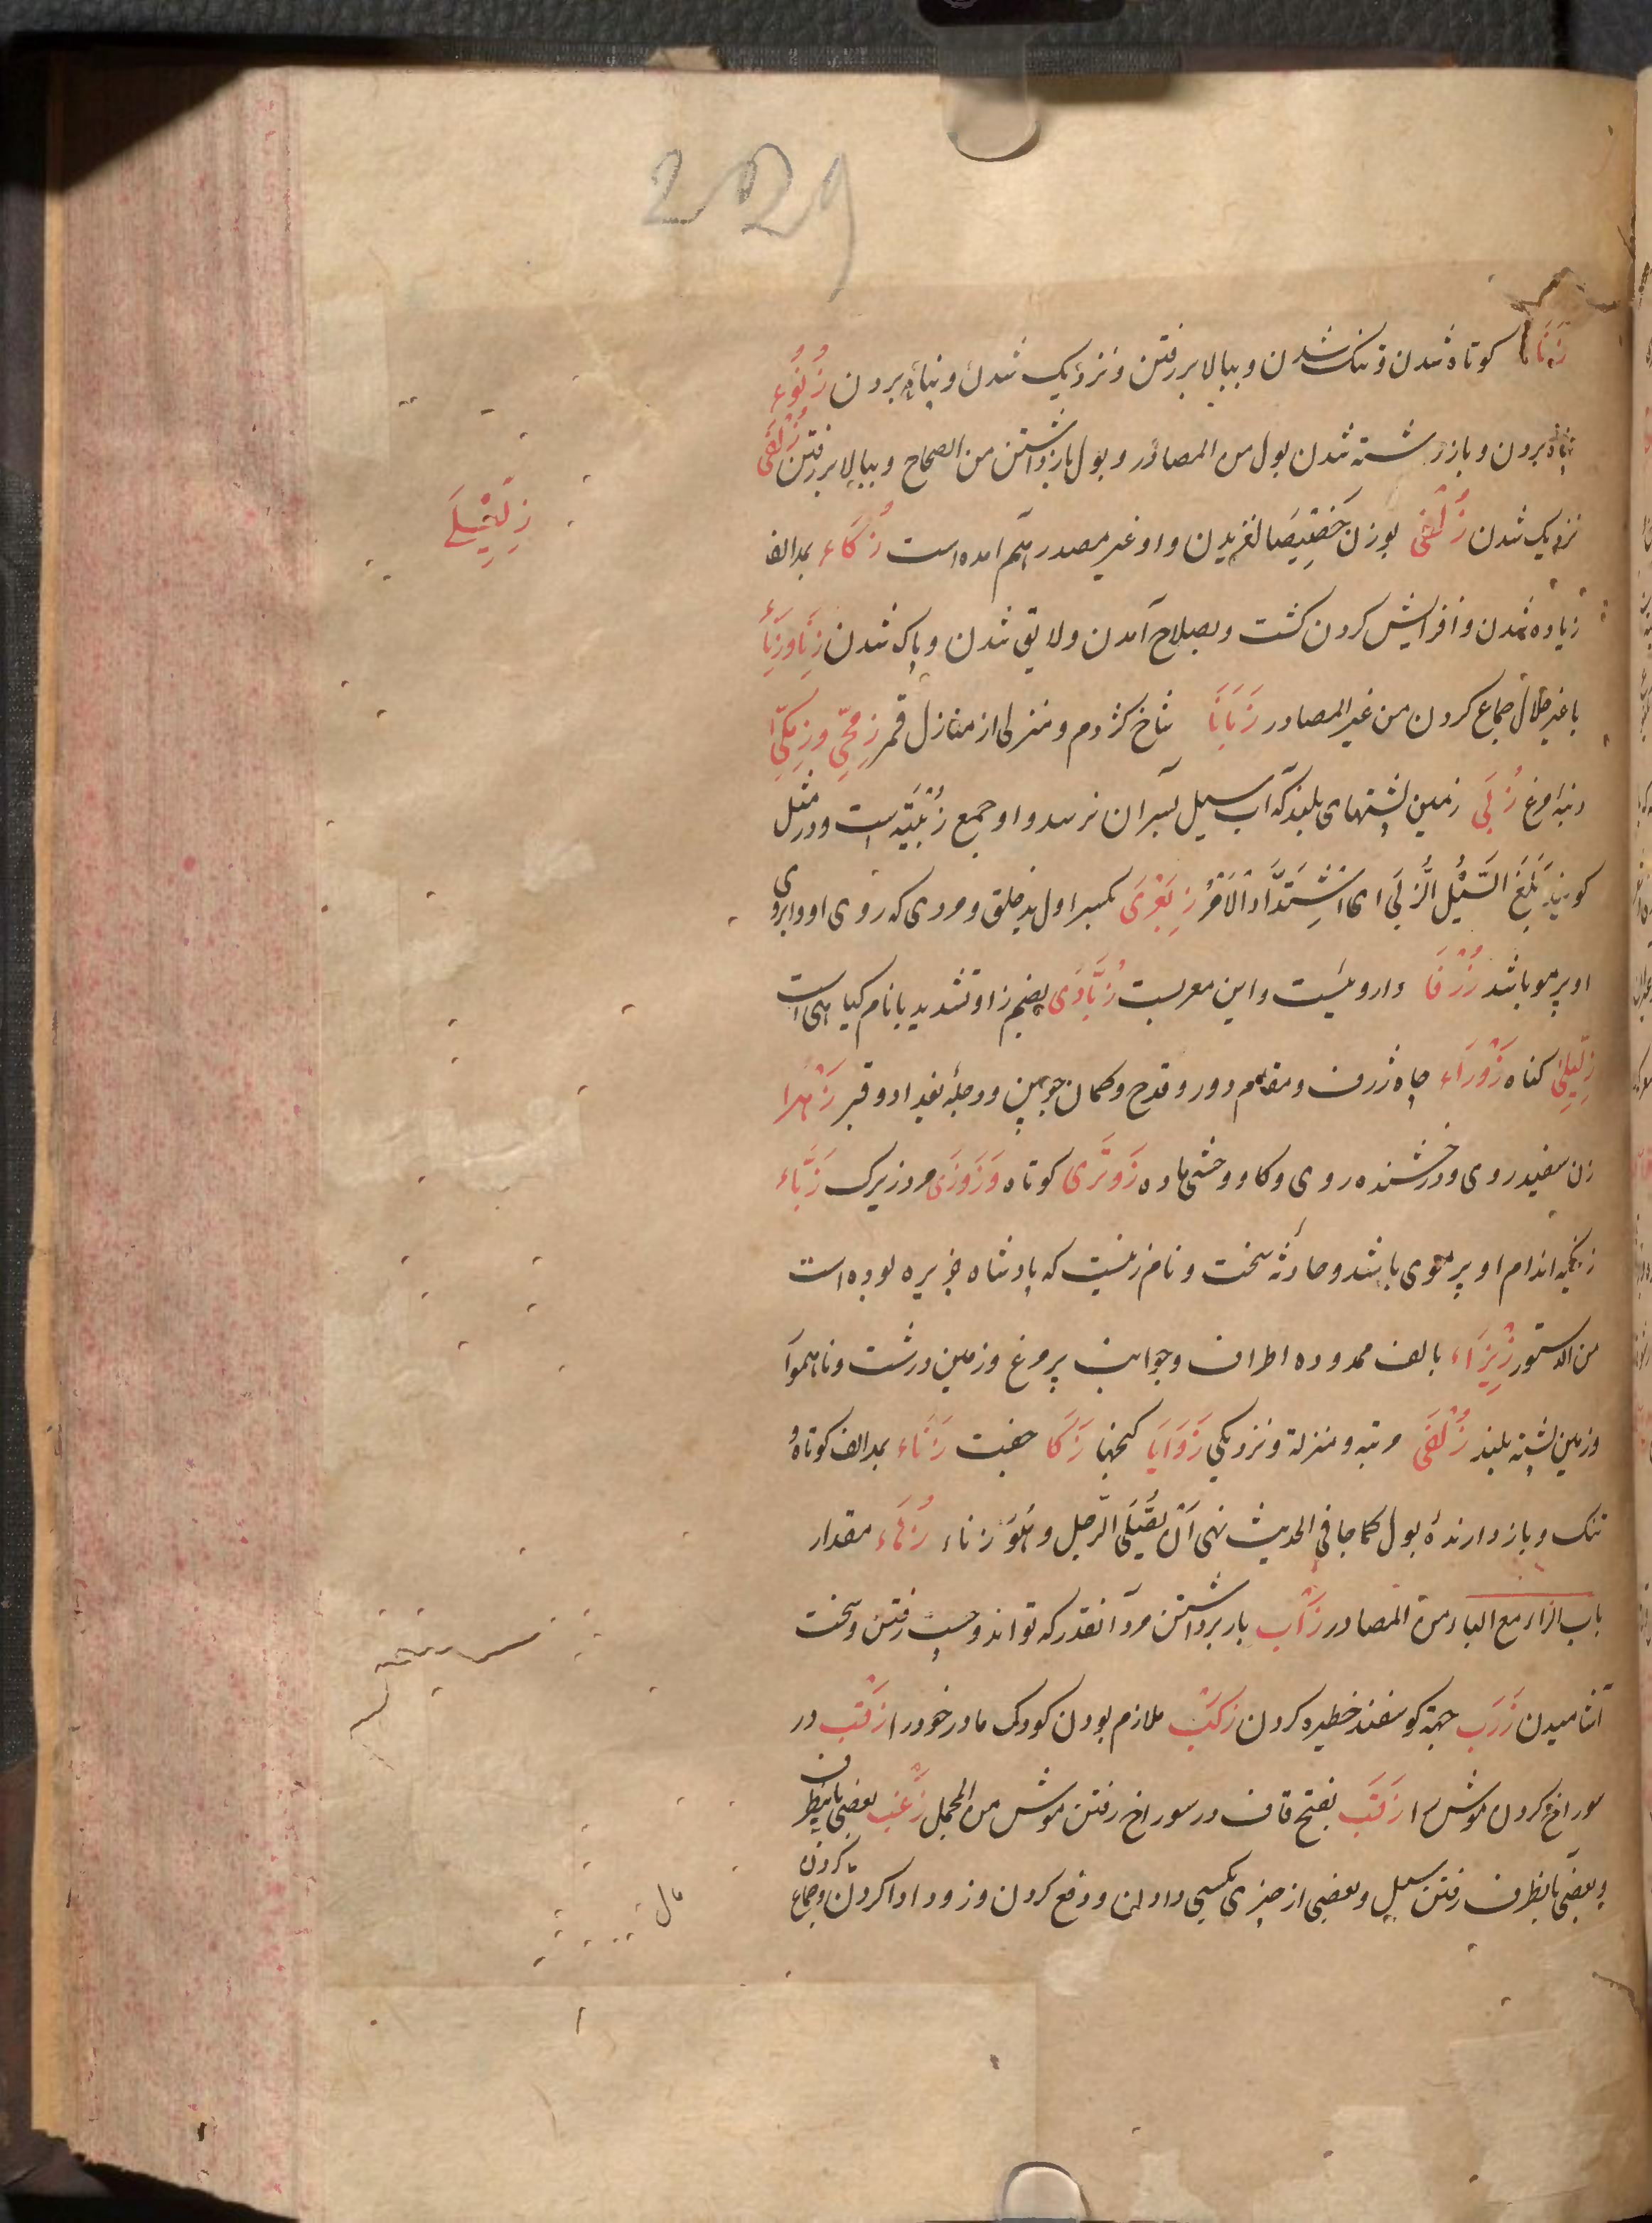 2029
زَنَاءَ کوتاه شدن و تنک شدن و ببالا بر رفتن و نزدیک شدن و پناه بردن زُنُوءِ
پناه بردن و باز داشته شدن بول من المصادر و بول باز داشتن من الصحاح و ببالا بر رفتن زُلْفَی
نزدیک شدن زُلْفَی بوزن خصیصا لغزیدن و او غیر مصدر هم آمده است زَکَاء بمد الف
زیاده شدن و افزایش کردن کشت و بصلاح آمدن و لایق شدن و پاک شدن زِنَا وزِنَاءِ
با غیر حلال جماع کردن من غیر المصادر زَبَانَا شاخ کژدم و منزلی از منازل قمر زِمِجّی وزِمِکّی
دنبه مرغ زُبَی زمین پشتهای بلند که آب سیل بسر آن نرسد و او جمع زُبْیَه است و در مثل
کویند بَلَغَ السَّیْلُ الزُّبَی ای اشْتَدَّ الْاَمْرُ زِبَعْرَی بکسر اول بد خلق و مردی که روی او و ابروی
او پر مو باشد زُرْفَا داروئیست و این معربست زُبَّادَی بضم زا و تشدید با نام کیاهی است
زِلِّیلِی کناه زَوْرَاء چاه ژرف و مقام دور و قدح و کمان چوبین و دجله بغداد و قبر زَهْرا
زن سفید روی و درخشنده روی و کاو وحشی ماده زَوَنْزَی کوتاه وَزَوَزَی مرد زیرک زَبَّاء
زنکیه اندام او پر موی باشد و حادثه سخت و نام زنیست که پادشاه جزیره بوده است
من الدستور زِیزَاء بالف ممدوده اطراف و جوانب پر مرغ و زمین درشت و ناهموار
و زمین پشته بلند زُلْفَی مرتبه و منزلة و نزدیکی زَوَایَا کنجها زَکَا جفت زَنَاء بمد الف کوتاه و
تنک و باز دارنده بول کما جا فی الحدیث نهی اَنْ یُصَلِّیَ الرَّجل و هُوَ زناء زُهَاء مقدار
باب الزاء مع الباء من المصادر زَأْب بار برداشتن مرد آنقدر که تواند و چست رفتن و سخت
آشامیدن زَرَب جهة کوسفند خطیره کردن زَکْب ملازم بودن کودک مادر خود را زَقْب در
سوراخ کردن موش را زَقَب بفتح قاف در سوراخ رفتن موش من المجمل زَعْب بعضی بانطرف
و بعضی بانطرف رفتن سیل و بعضی از چیزی بکسی دادن و دفع کردن و زود ادا کردن و جماع کردن
زِلِّیْلَی
مال